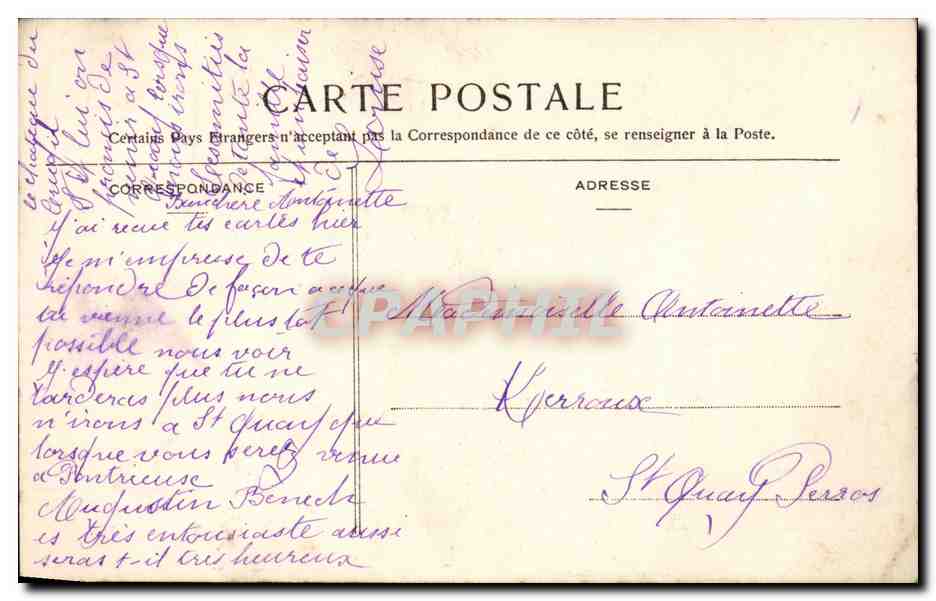 CARTE POSTALE
Certains Pays Etrangers n'acceptent pas la Correspondance de ce côté, se renseigner à la Poste.
CORRESPONDANCE
ADRESSE
Antoinette
J'ai reçue tes cartes hier
je m'empresse de te
répondre de façon a que
tu vienne le plus tot
possible nous voir
J'espère que tu ne
tarderas plus nous
n'irons a St Quay que
lorsque vous serez venue
a Pontrieuse
Augustin Benech
es très entousiaste ausse
seras t-il tres heureux
le
du
promis de
venir a St
Quay lorsque
nous irons
de toute la
famille
de
Mademoiselle Antoinette
Kerroux
St Quay Perros
CPAPHIL